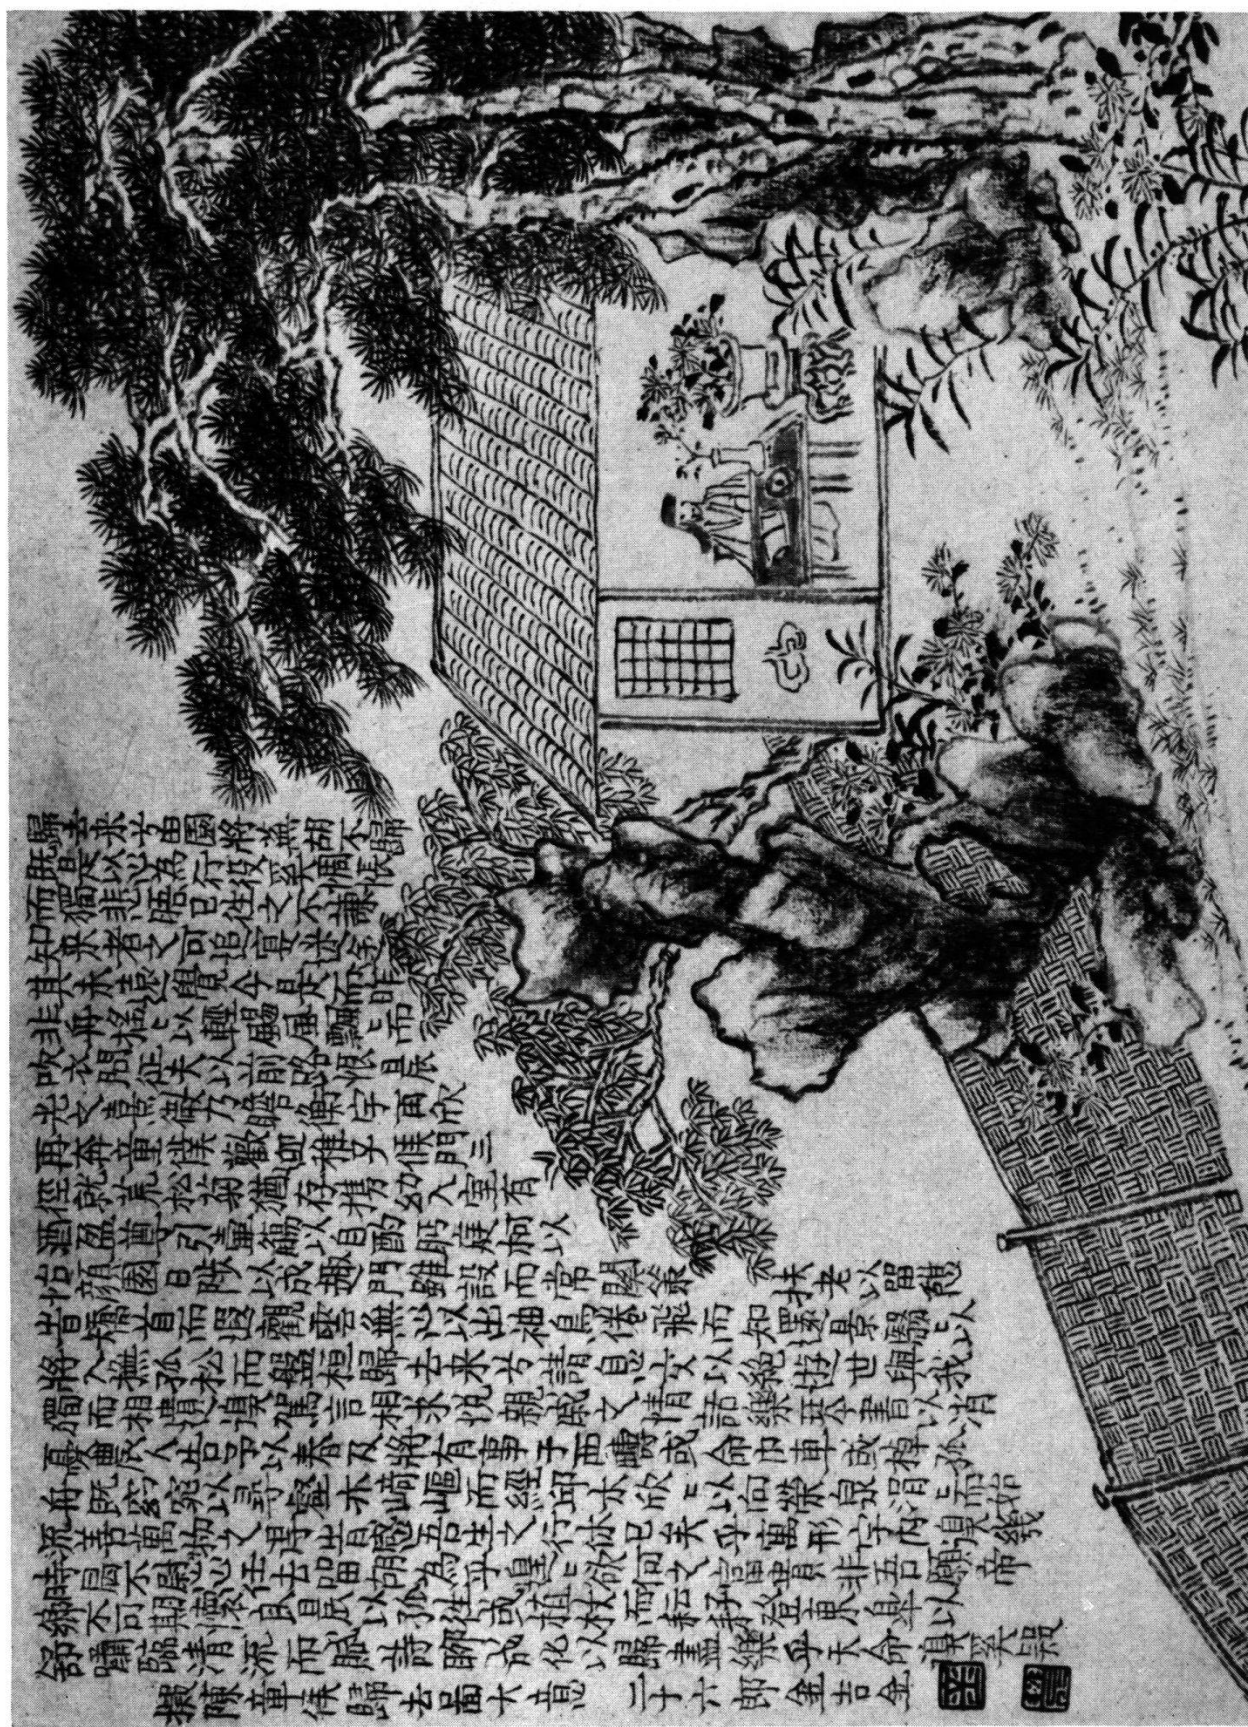 歸去来兮田園將蕪胡不歸
既自以心為形役奚惆悵
而獨悲悟已往之不諫
知来者之可追寔迷途
其未遠覺今是而昨
非舟遙ミ以輕颺風飄ミ而
吹衣問征夫以前路恨晨
光之熹微乃瞻衡宇再欣
再奔童僕歡迎稚子候門三
徑就荒松菊猶存携幼入室有
酒盈尊引壺觴以自酌眄庭柯以
怡顏園日陟以成趣門雖設而常關策扶老以留憩
時矯首而遐觀雲無心以出岫鳥倦飛而知還景翳ミ以
將入撫孤松而盤桓歸去来兮請息交以絕遊世與我
而相遺復駕言兮焉求悅親戚之情話樂琴書以消
憂農人告予以春及將有事于西疇或命巾車或棹孤
舟既窈窕以尋壑亦崎嶇而經邱木欣ミ以向榮泉涓ミ而始
流羨萬物之得時感吾生之行休已矣乎寓形宇内復幾
時曷不委心任去留胡為乎皇ミ欲何之富貴非吾願帝
鄉不可期懷良晨以孤往或植杖而耘耔登東皋以
舒嘯臨清流而賦詩聊乘化以歸盡樂夫天命復奚疑
擬陳章侯歸去圖大意 二十六郎金吉金